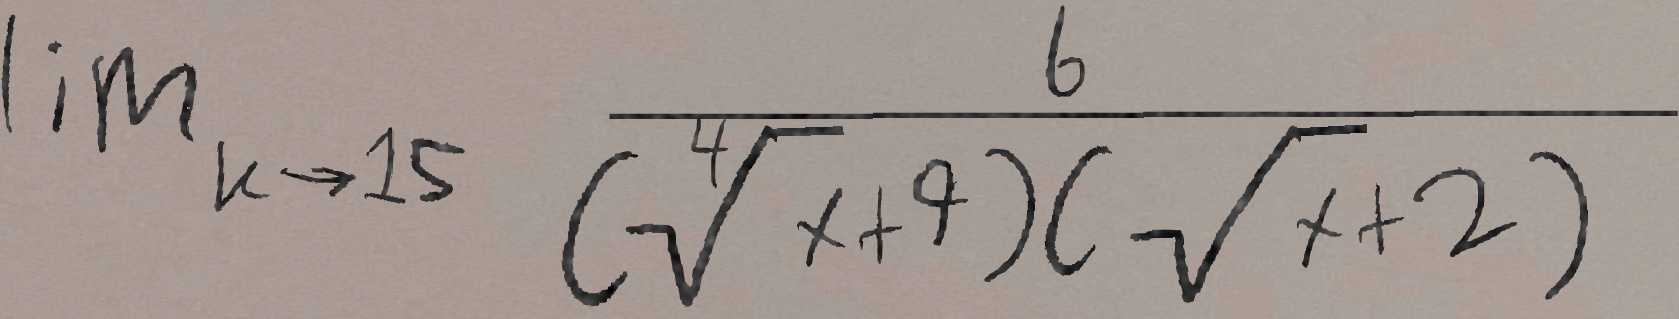 \lim_{k \to 15} \frac{6}{(\sqrt[4]{x+9})(\sqrt{x+2})}